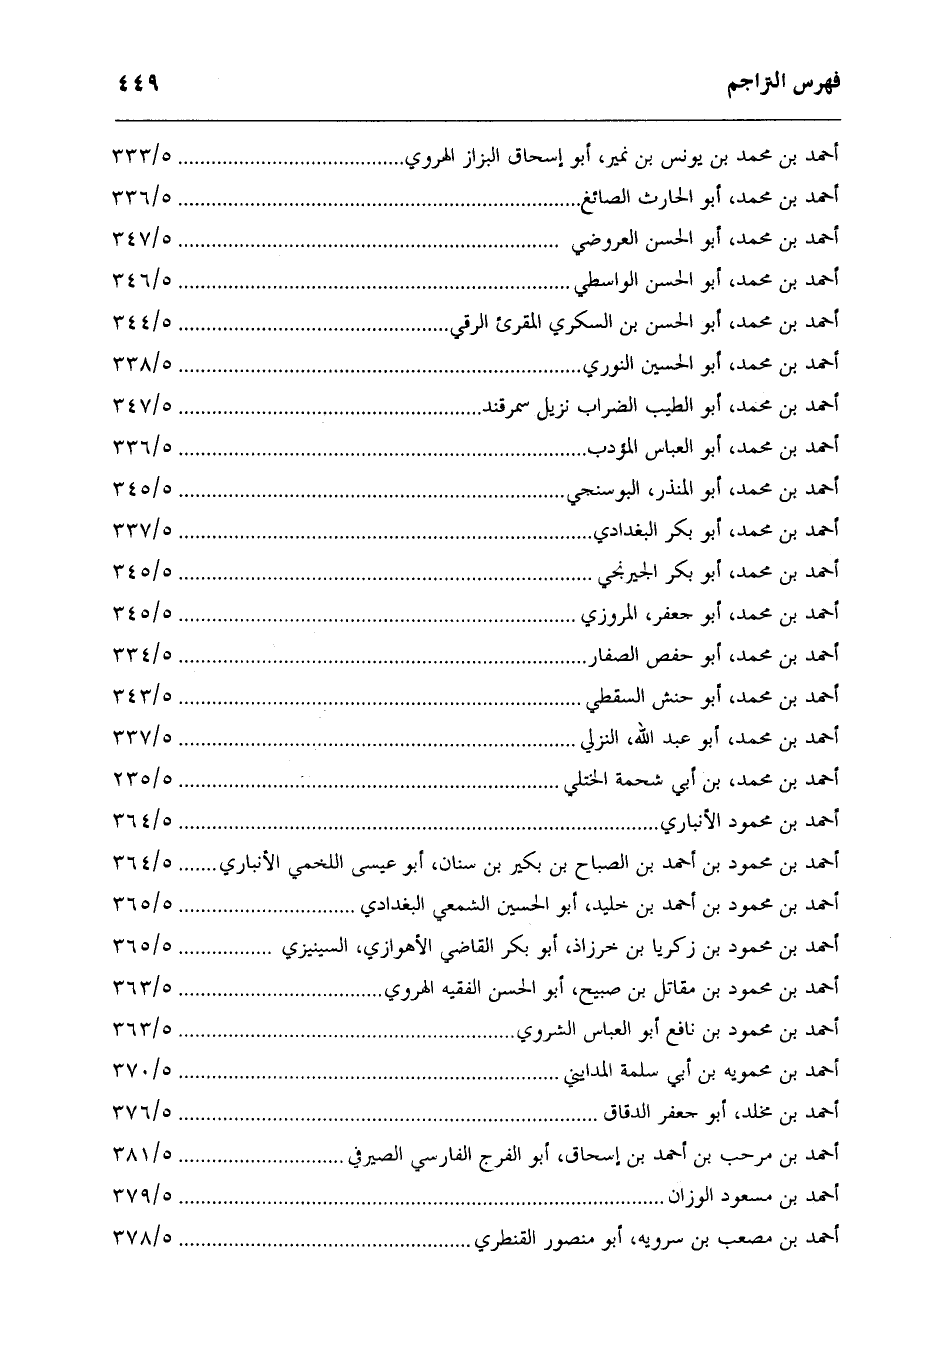 فهرس التراجم ٤٤٩
أحمد بن محمد بن يونس بن نمير، أبو إسحاق البزاز الهروي ..... ٣٣٣/٥
أحمد بن محمد، أبو الحارث الصائغ ..... ٣٣٦/٥
أحمد بن محمد، أبو الحسن العروضي ..... ٣٤٧/٥
أحمد بن محمد، أبو الحسن الواسطي ..... ٣٤٦/٥
أحمد بن محمد، أبو الحسن بن السكري المقرئ الرقي ..... ٣٤٤/٥
أحمد بن محمد، أبو الحسين النوري ..... ٣٣٨/٥
أحمد بن محمد، أبو الطيب الضراب نزيل سمرقند ..... ٣٤٧/٥
أحمد بن محمد، أبو العباس المؤدب ..... ٣٣٦/٥
أحمد بن محمد، أبو المنذر، البوسنجي ..... ٣٤٥/٥
أحمد بن محمد، أبو بكر البغدادي ..... ٣٣٧/٥
أحمد بن محمد، أبو بكر الجيرنجي ..... ٣٤٥/٥
أحمد بن محمد، أبو جعفر، المروزي ..... ٣٤٥/٥
أحمد بن محمد، أبو حفص الصفار ..... ٣٣٤/٥
أحمد بن محمد، أبو حنش السقطي ..... ٣٤٣/٥
أحمد بن محمد، أبو عبد الله، النزلي ..... ٣٣٧/٥
أحمد بن محمد، بن أبي شحمة الختلي ..... ٢٣٥/٥
أحمد بن محمود الأنباري ..... ٣٦٤/٥
أحمد بن محمود بن أحمد بن الصباح بن بكير بن سنان، أبو عيسى اللخمي الأنباري ..... ٣٦٤/٥
أحمد بن محمود بن أحمد بن خليد، أبو الحسين الشمعي البغدادي ..... ٣٦٥/٥
أحمد بن محمود بن زكريا بن خرزاذ، أبو بكر القاضي الأهوازي، السينيزي ..... ٣٦٥/٥
أحمد بن محمود بن مقاتل بن صبيح، أبو الحسن الفقيه الهروي ..... ٣٦٣/٥
أحمد بن محمود بن نافع أبو العباس الشروي ..... ٣٦٣/٥
أحمد بن محمويه بن أبي سلمة المدايني ..... ٣٧٠/٥
أحمد بن مخلد، أبو جعفر الدقاق ..... ٣٧٦/٥
أحمد بن مرحب بن أحمد بن إسحاق، أبو الفرج الفارسي الصيرفي ..... ٣٨١/٥
أحمد بن مسعود الوزان ..... ٣٧٩/٥
أحمد بن مصعب بن سرويه، أبو منصور القنطري ..... ٣٧٨/٥